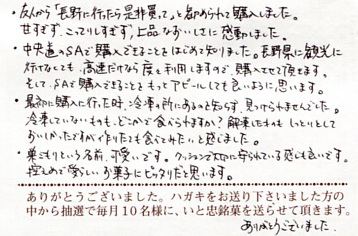 ・友人から「長野に行ったら是非買って」と勧められて購入しました。
甘すぎず、こってりしすぎず、上品なおいしさに感動しました。
・中央道のSAで購入できることをはじめて知りました。長野県に観光に
行けなくても、高速だけなら度々利用しますので、購入させて頂きます。
そして、SAで購入できることもっとアピールしても良いように思います。
・最初に購入に行った時、冷凍の所にあるのを知らず、見つけられませんでした。
冷凍していないものも、どこかで食べられますか？解凍したものもしっとりとして
おいしかったですが、作りたても食べてみたいと感じました。
・巣ごもりという名前、可愛いです。クッションで大切に守られている感じも良いです。
控えめで愛らしいお菓子にピッタリだと思います。
ありがとうございました。ハガキをお送り下さいました方の
中から抽選で毎月10名様に、いと忠銘菓を送らせて頂きます。
ありがとうございました。